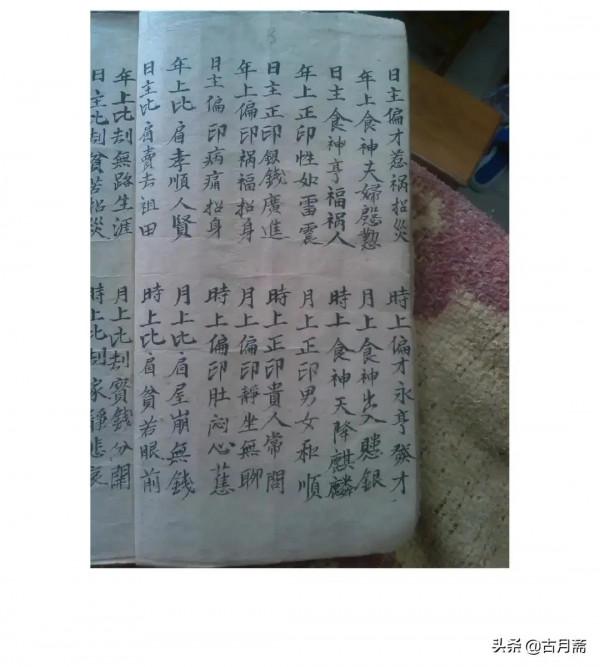 日主偏才惹祸招災 時上偏才永亨發才
年上食神夫婦慇懃 月上食神出入銀
日主食神亨福祸人 時上食神天降麒麟
年上正印性如雷震 月上正印男女和順
日主正印銀錢廣進 時上正印貴人常問
年上偏印祸福招身 月上偏印靜坐無聊
日主偏印病痛招身 時上偏印肚闷心蕉
年上比肩孝順人賢 月上比肩屋崩無錢
日主比肩賣去祖田 時上比肩貧若眼前
年上比刦無路生涯 月上比刦寳錢分開
日主比刦貧苦招災 時上比刦家靜悲哀
头条 @古月斋